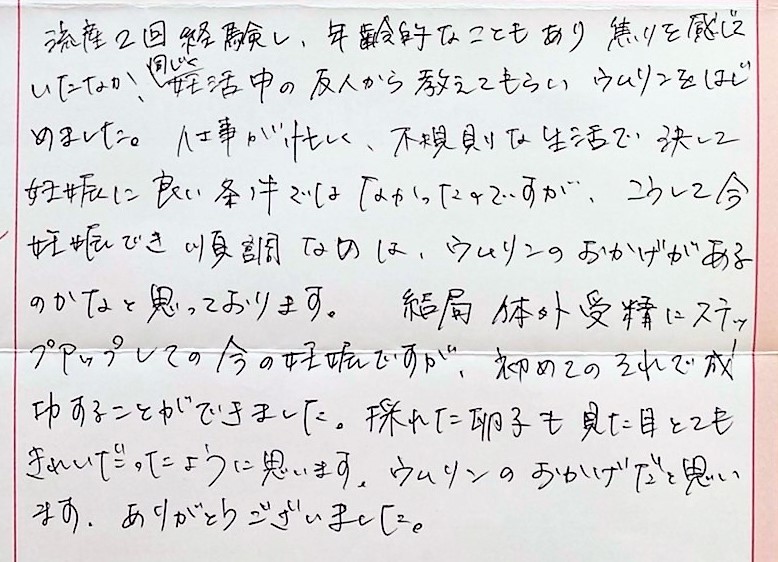 流産2回経験し、年齢的なこともあり 焦りを感じて
いたなか、同じく妊活中の友人から教えてもらい ウムリンをはじ
めました。仕事が忙しく、不規則な生活で 決して
妊娠に良い条件ではなかったのですが、こうして今
妊娠でき順調なのは、ウムリンのおかげがある
のかなと思っております。 結局 体外受精にステッ
プアップしての今の妊娠ですが、初めてのそれで成
功することができました。採れた卵子も見た目とても
きれいだったように思います。ウムリンのおかげだと思い
ます。ありがとうございました。